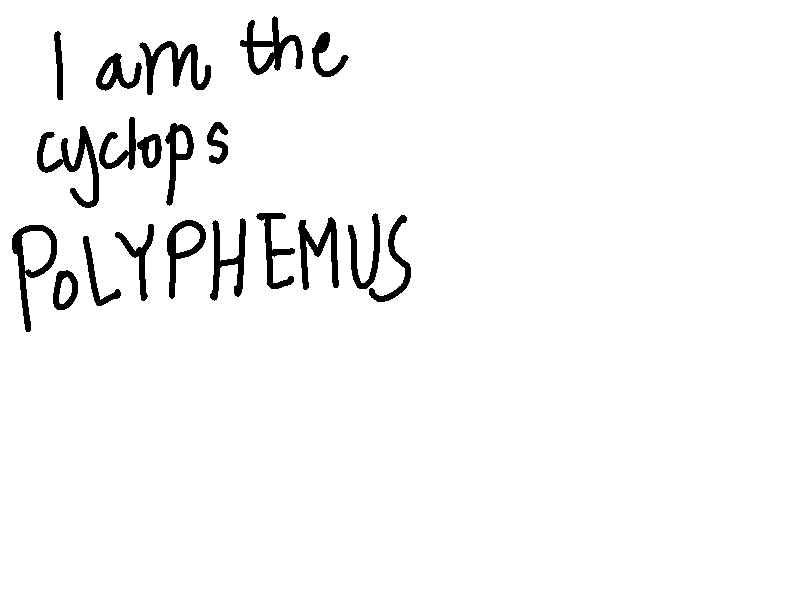 I am the
cyclops
POLYPHEMUS